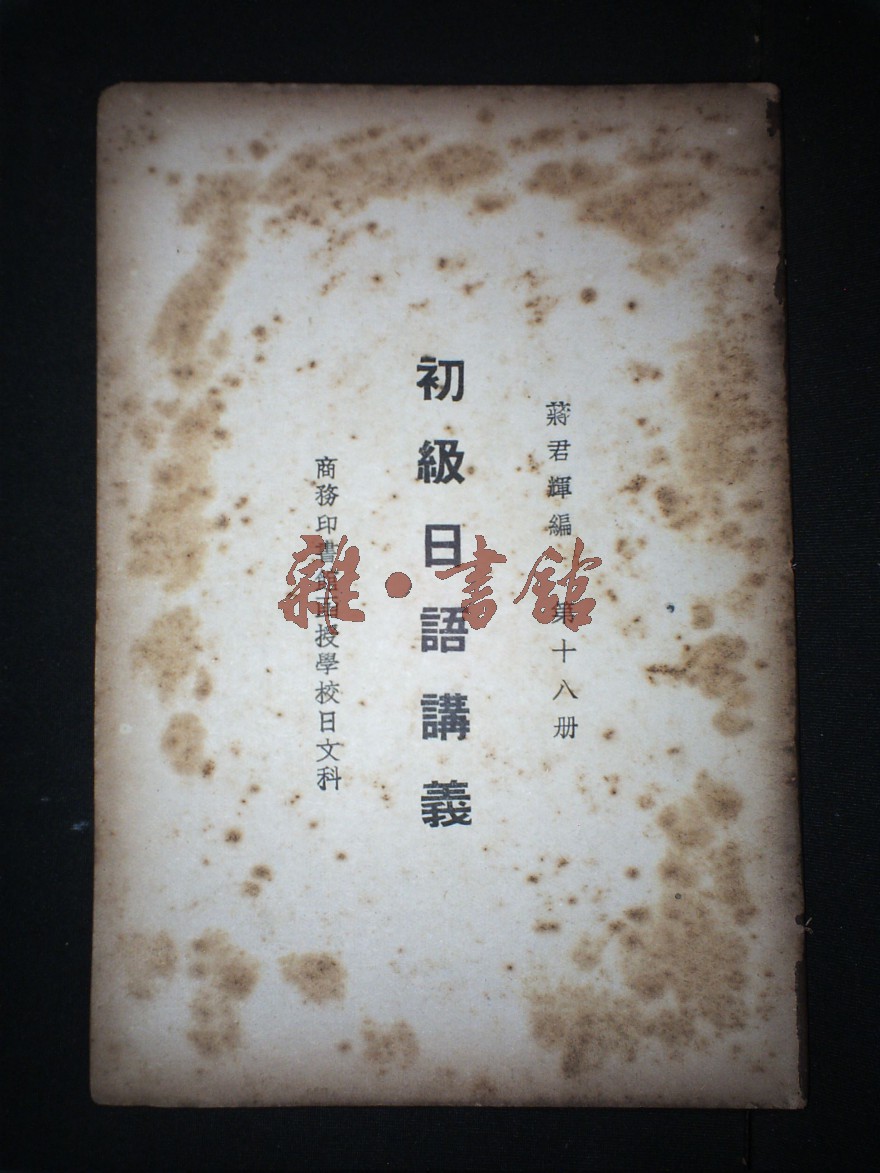 蔣君輝編 第十八册
初級日語講義
商務印書館函授學校日文科
雜·書館